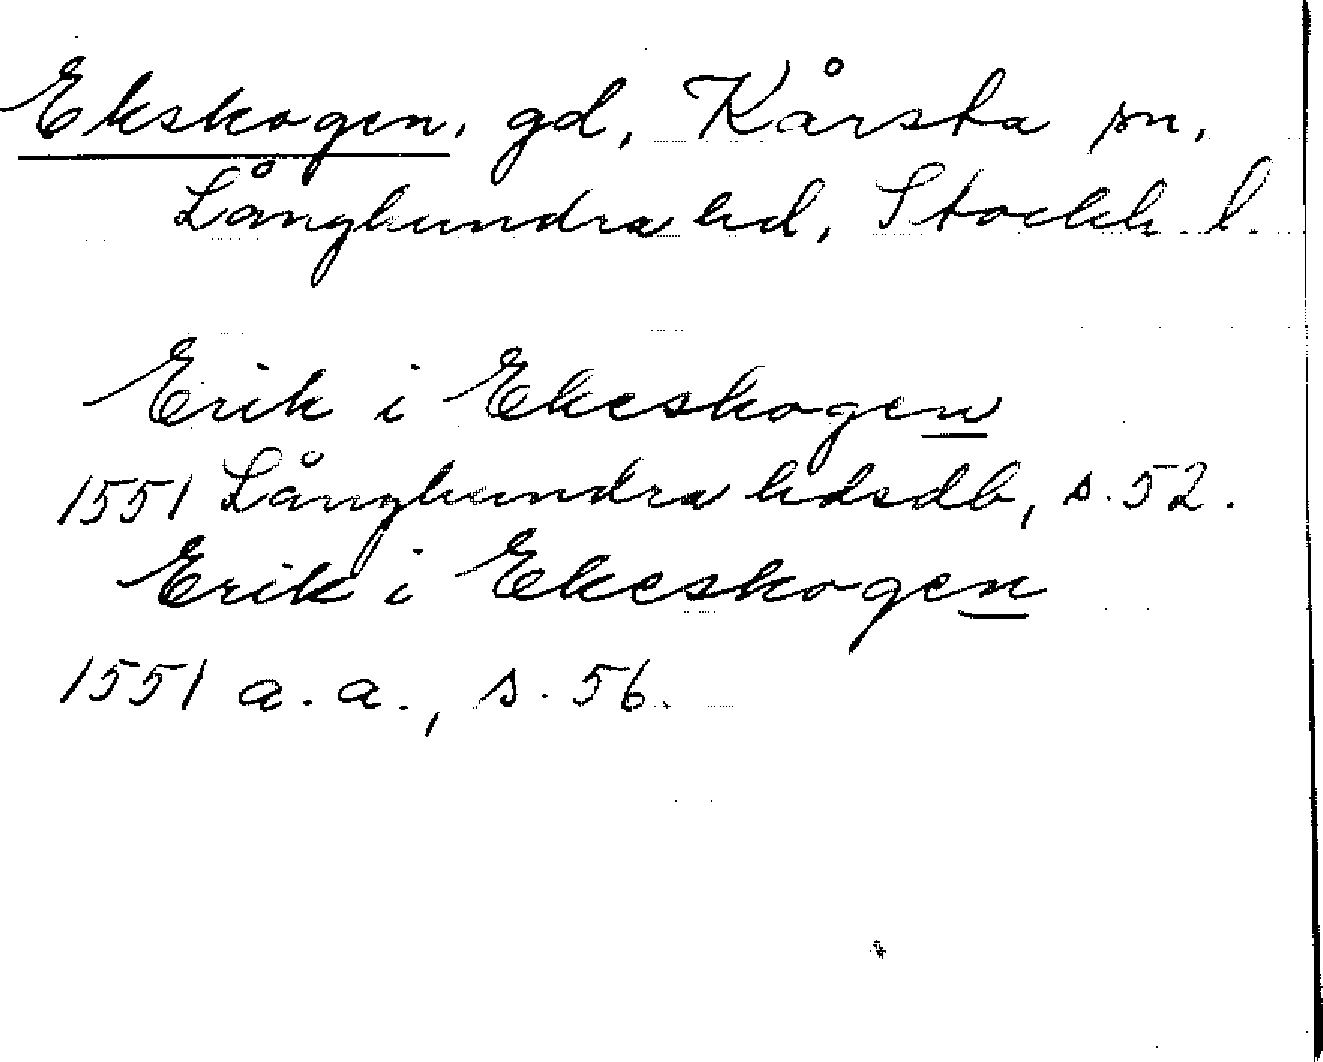 Ekskogen, gd, Kårsta sn,
Långhundra hd, Stockh. l.
Erik i Ekeskogen
1551 Långhundra hdsdb, s. 52.
Erik i Ekeskogen
1551 a. a., s. 56.